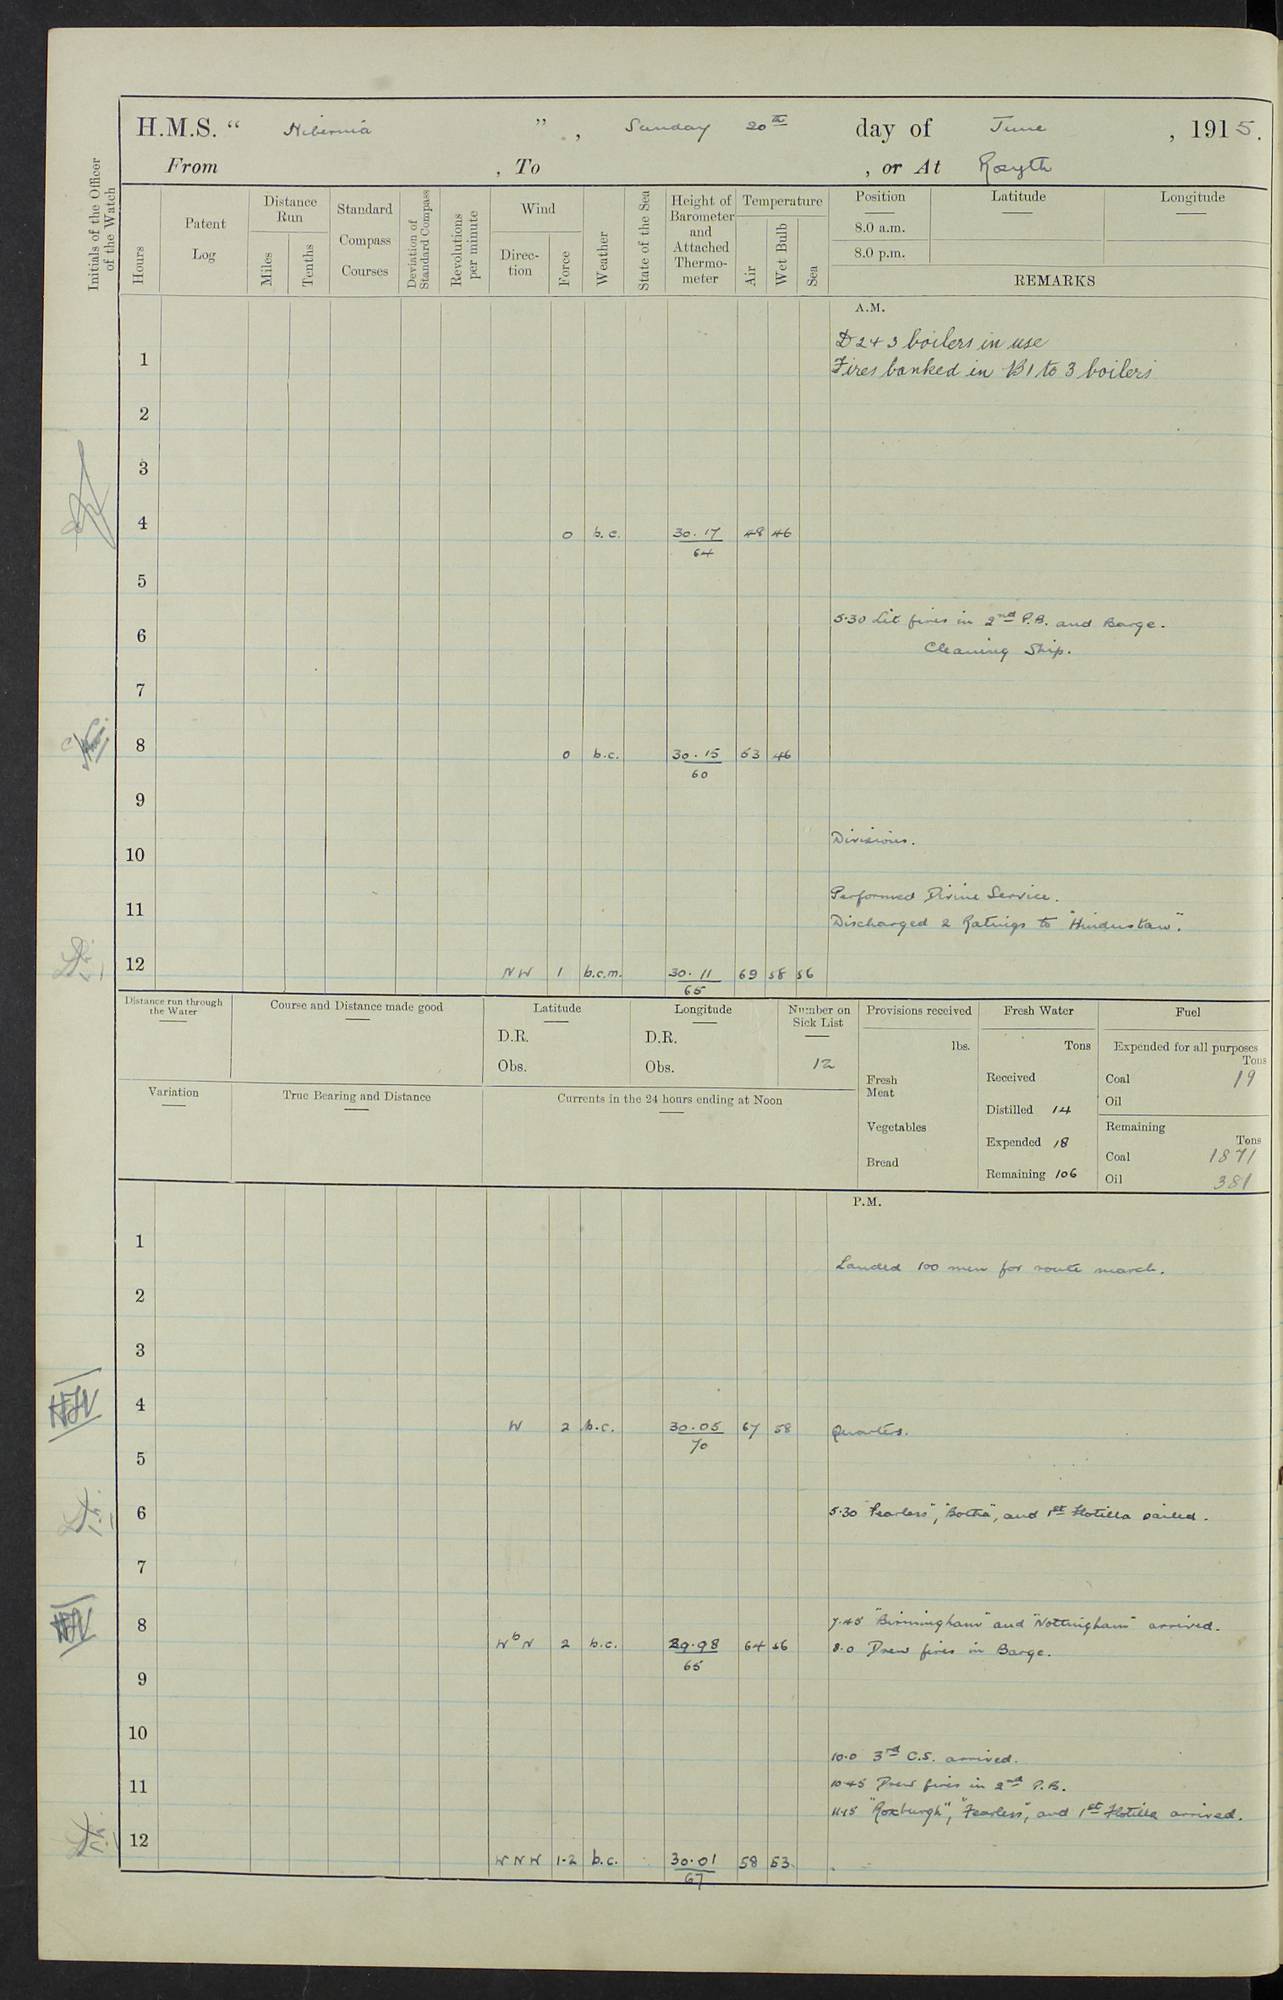 H.M.S. “ Hibernia ” , Sunday 20th day of June , 1915.
From , To , or At Rosyth
Initials of the Officer of the Watch
Hours
Patent Log
Distance Run
Miles
Tenths
Standard Compass Courses
Deviation of Standard Compass
Revolutions per minute
Wind
Direction
Force
Weather
State of the Sea
Height of Barometer and Attached Thermometer
Temperature
Air
Wet Bulb
Sea
Position Latitude Longitude
8.0 a.m.
8.0 p.m.
REMARKS
A.M.
D 2 + 3 boilers in use
1 Fires banked in B1 to 3 boilers
2
3
4 0 b.c. 30.17 48 46
64
5
5.30 Lit fires in 2nd P.B. and Barge.
6 Cleaning Ship.
7
8 0 b.c. 30.15 53 46
60
9
10 Divisions.
Performed Divine Service.
11 Discharged 2 Ratings to "Hindustan".
12 NW 1 b.c.m. 30.11 69 58 56
65
Distance run through the Water
Course and Distance made good
Latitude
D.R.
Obs.
Longitude
D.R.
Obs.
Number on Sick List
12
Variation
True Bearing and Distance
Currents in the 24 hours ending at Noon
Provisions received
lbs.
Fresh Meat
Vegetables
Bread
Fresh Water
Tons
Received
Distilled 14
Expended 18
Remaining 106
Fuel
Expended for all purposes
Tons
Coal 19
Oil
Remaining
Tons
Coal 1871
Oil 381
P.M.
1
Landed 100 men for route march.
2
3
4 W 2 b.c. 30.05 67 58 Quarters.
70
5
6 5.30 "Fearless", "Botha", and 1st Flotilla sailed.
7
8 7.45 "Birmingham" and "Nottingham" arrived.
WbN 2 b.c. 29.98 64 56 8.0 Drew fires in Barge.
65
9
10
10.0 3rd C.S. arrived.
11 10.45 Drew fires in 2nd P.B.
11.15 "Roxburgh", "Fearless", and 1st Flotilla arrived.
12 WNW 1-2 b.c. 30.01 58 53
67